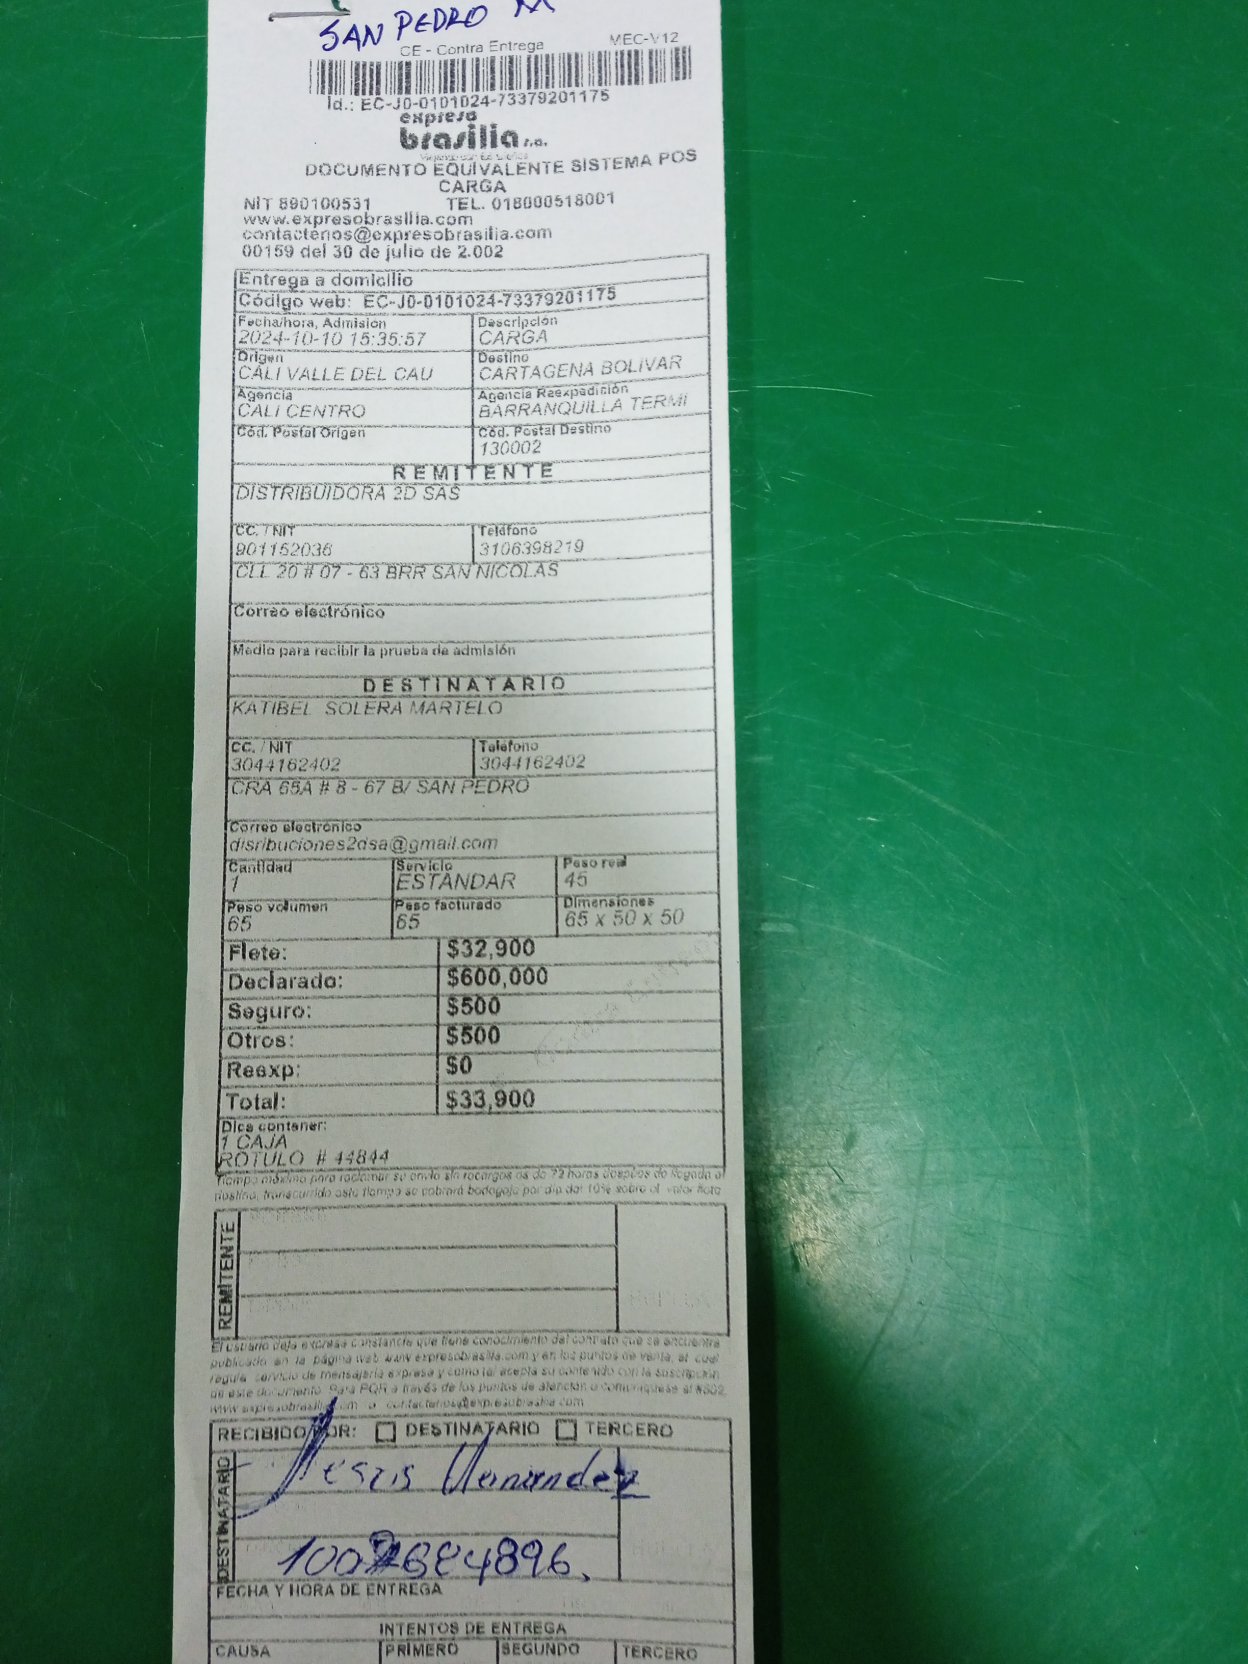 SAN PEDRO
CE - Contra Entrega MEC-V12
Id.: EC-J0-0101024-73379201175
expreso
brasilia s.a.
DOCUMENTO EQUIVALENTE SISTEMA POS
CARGA
NIT 890100531 TEL. 018000518001
www.expresobrasilia.com
contactenos@expresobrasilia.com
00159 del 30 de julio de 2.002
Entrega a domicilio
Código web: EC-J0-0101024-73379201175
Fecha/hora, Admision Descripción
2024-10-10 15:35:57 CARGA
Origen Destino
CALI VALLE DEL CAU CARTAGENA BOLIVAR
Agencia Agencia Reexpedición
CALI CENTRO BARRANQUILLA TERMI
Cód. Postal Origen Cód. Postal Destino
130002
REMITENTE
DISTRIBUIDORA 2D SAS
CC. / NIT Teléfono
901152036 3106398219
CLL 20 # 07 - 63 BRR SAN NICOLAS
Correo electrónico
Medio para recibir la prueba de admisión
DESTINATARIO
KATIBEL SOLERA MARTELO
CC. / NIT Teléfono
3044162402 3044162402
CRA 65A # 8 - 67 B/ SAN PEDRO
Correo electrónico
disribuciones2dsa@gmail.com
Cantidad Servicio Peso real
1 ESTANDAR 45
Peso volumen Peso facturado Dimensiones
65 65 65 x 50 x 50
Flete: $32,900
Declarado: $600,000
Seguro: $500
Otros: $500
Reexp: $0
Total: $33,900
Dice contener:
1 CAJA
ROTULO # 44844
Tiempo máximo para reclamar su envío sin recargos es de 72 horas después de llegada al
destino, transcurrido este tiempo se cobrará bodegaje por día del 10% sobre el valor flete
REMITENTE
El usuario deja expresa constancia que tiene conocimiento del contrato que se encuentra
publicado en la página web www.expresobrasilia.com y en los puntos de venta, el cual
regula servicio de mensajería expresa y como tal acepta su contenido con la suscripción
de este documento. Para PQR a través de los puntos de atención o comuníquese al #502
www.expresobrasilia.com o contactenos@expresobrasilia.com
RECIBIDO POR: DESTINATARIO TERCERO
DESTINATARIO
FECHA Y HORA DE ENTREGA
INTENTOS DE ENTREGA
CAUSA PRIMERO SEGUNDO TERCERO